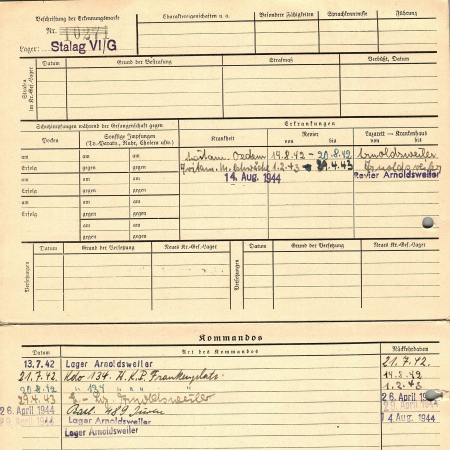 Beschriftung der Erkennungsmarke
Nr. 10271
Lager: Stalag VI/G
Charaktereigenschaften u. a.
Besondere Fähigkeiten
Sprachkenntnisse
Führung
Strafen im Kr.-Gef.-Lager
Datum
Grund der Bestrafung
Strafmaß
Verbüßt, Datum
Schutzimpfungen während der Gefangenschaft gegen
Pocken
Sonstige Impfungen
(Ty.-Paraty., Ruhr, Cholera usw.)
Erkrankungen
Krankheit
Revier
von bis
Lazarett — Krankenhaus
von bis
am am
gegen
Erfolg am
gegen
am am
Erfolg gegen
am am
Erfolg gegen
am
gegen
am
gegen
Oedem 19.8.42 – 20.8.42 Arnoldsweiler
1.2.43 29.4.43 Arnoldsweiler
14. Aug. 1944 Revier Arnoldsweiler
Versetzungen
Datum
Grund der Versetzung
Neues Kr.-Gef.-Lager
Versetzungen
Datum
Grund der Versetzung
Neues Kr.-Gef.-Lager
Kommandos
Datum
Art des Kommandos
Rückkehrdatum
13.7.42 Lager Arnoldsweiler 21.7.42.
21.7.42. Kdo 134. H.K.P. Frankenplatz
20.8.42 " 134 " " " 1.2.43
29.4.43 Arnoldsweiler 26. April 1944
26. April 1944 489 Düren 29. April 1944
29. April 1944 Lager Arnoldsweiler 14. Aug. 1944
Lager Arnoldsweiler